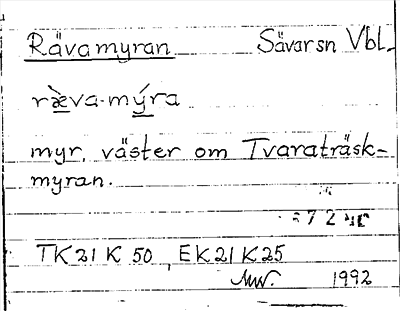 Rävamyran Sävar sn Vbl.
ræ̀va-mýra
myr, väster om Tvaraträsk-
myran.
TK 21 K 50, EK 21 K 25
1992